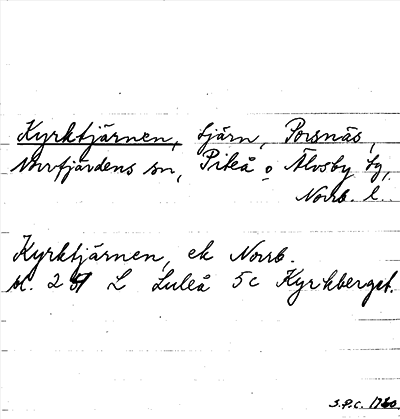 Kyrktjärnen, tjärn, Porsnäs,
Norrfjärdens sn, Piteå o Älvsby tg,
Norrb. l.
Kyrktjärnen, ek Norrb.
bl. 24 L Luleå 5c Kyrkberget.
S.P.C. 1780